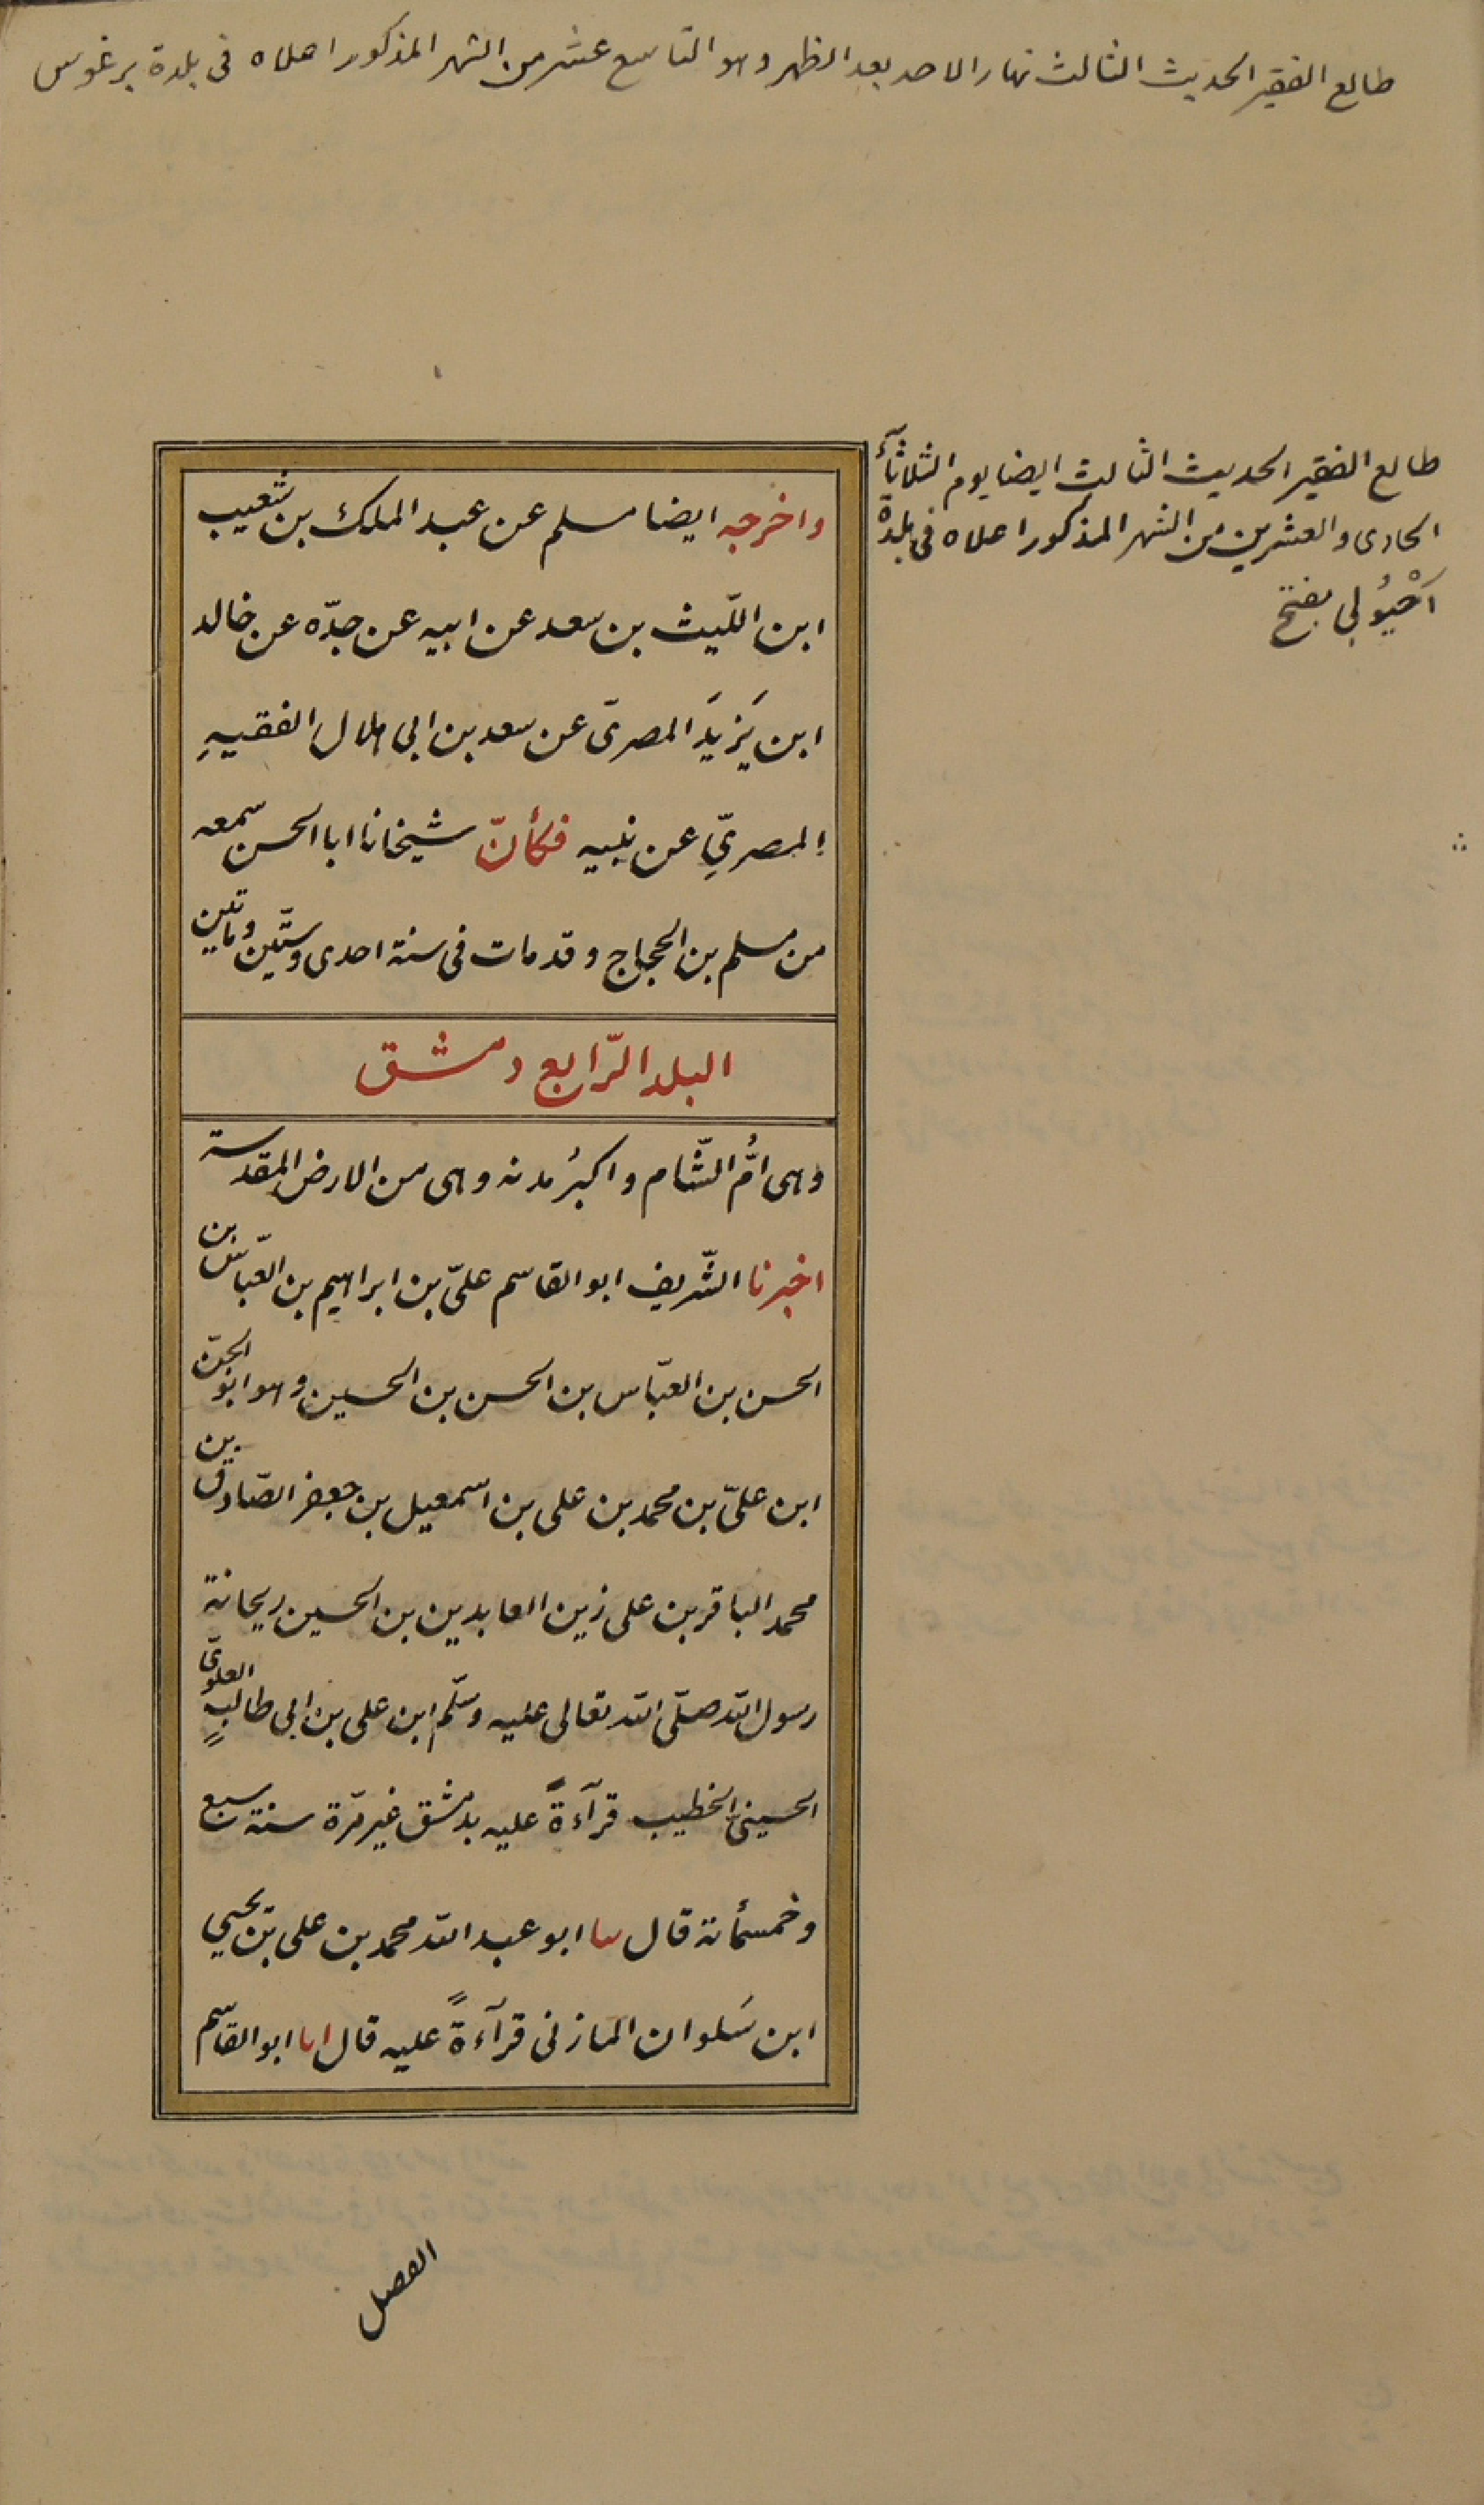 طالع الفقير الحديث الثالث نهار الاحد بعد الظهر وهو التاسع عشر من الشهر المذكور اعلاه فى بلدة برغوس
طالع الفقير الحديث الثالث ايضا يوم الثلاثآء
الحادى والعشرين من الشهر المذكور اعلاه فى بلدة
بفتح
واخرجه ايضا مسلم عن عبد الملك بن شعيب
ابن اللّيث بن سعد عن ابيه عن جدّه عن خالد
ابن يَزيدَ المصرىّ عن سعد بن ابى هلال الفقيهِ
المصريّ عن نبيه فكأنّ شيخانا ابا الحسن سمعه
من مسلم بن الحجاج وقد مات فى سنة احدى وستّين ومأتين
البلد الرّابع دمشق
وهى امُّ الشّام واكبرُ مدنه وهى من الارض المقدسة
اخبرنا الشّريف ابو القاسم علىّ بن ابراهيم بن العبّاس بن
الحسن بن العبّاس بن الحسن بن الحسين وهو ابو الجنّ
ابن علىّ بن محمد بن على بن اسمعيل بن جعفر الصّادق بن
محمد الباقر بن على زين العابدين بن الحسين ريحانة
رسول الله صلّى الله تعالى عليه وسلّم ابن على بن ابى طالب العلوىّ
الحسينىّ الخطيب قرآءةً عليه بدمشق غير مرّة سنة سبع
وخمسمأة قال سا ابو عبد الله محمد بن على بن يحيى
ابن سَلوان المازنى قرآءةً عليه قال انا ابو القاسم
الفصل